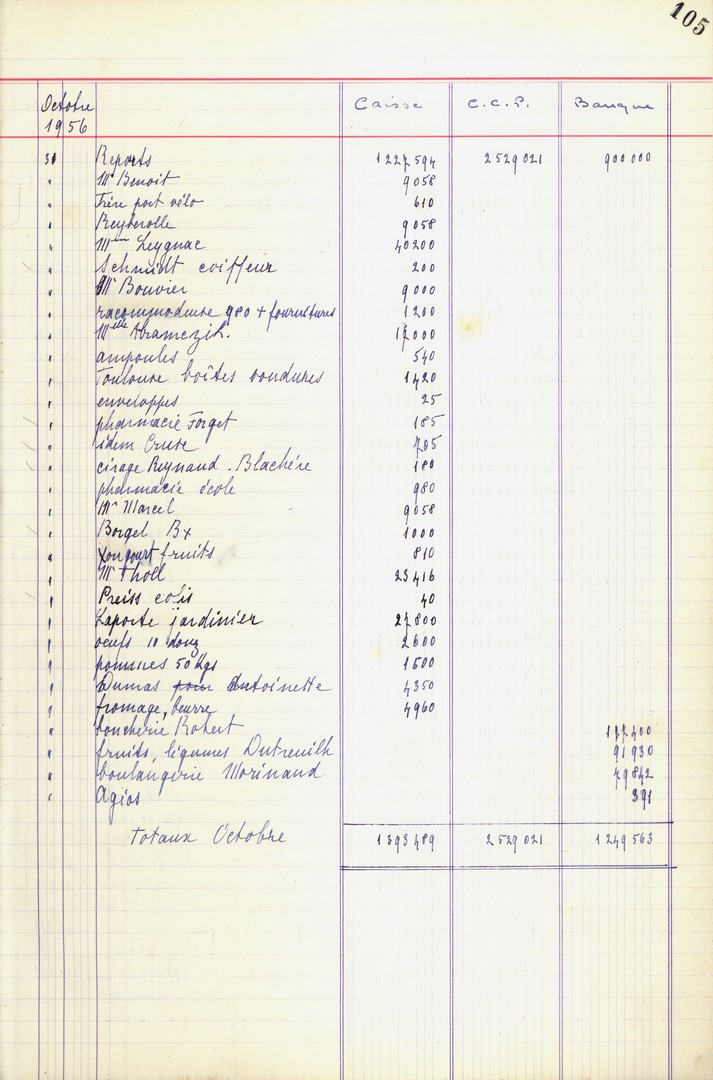 105
Octobre 1956 Caisse C.C.P. Banque
31 Reports 1227594 2529021 900000
" Mr Benoit 9058
" Frère port vélo 610
" Reyberolle 9058
" Mme Leygnac 40200
" Schmidt coiffeur 200
" Mr Bouvier 9000
" racommodeuse 980 + fournitures 1200
" Melle 17000
" ampoules 540
" Toulouse boîtes soudures 1420
" enveloppes 25
" pharmacie Forget 185
" idem 705
" cirage Reynaud-Blachère 180
" pharmacie école 980
" Mr Marcel 9058
" Borgel Bx 1000
" fruits 810
" Mr Tholl 23416
" Preiss colis 40
" Laporte jardinier 27800
" oeufs 10 douz 2600
" pommes 50 Kgs 1500
" Dumas pour Antoinette 4350
" fromage, beurre 4960
" boucherie Robert 177400
" fruits, légumes Dutreuilh 91930
" boulangerie Morinaud 79842
" Agios 391
Totaux Octobre 1393489 2529021 1249563